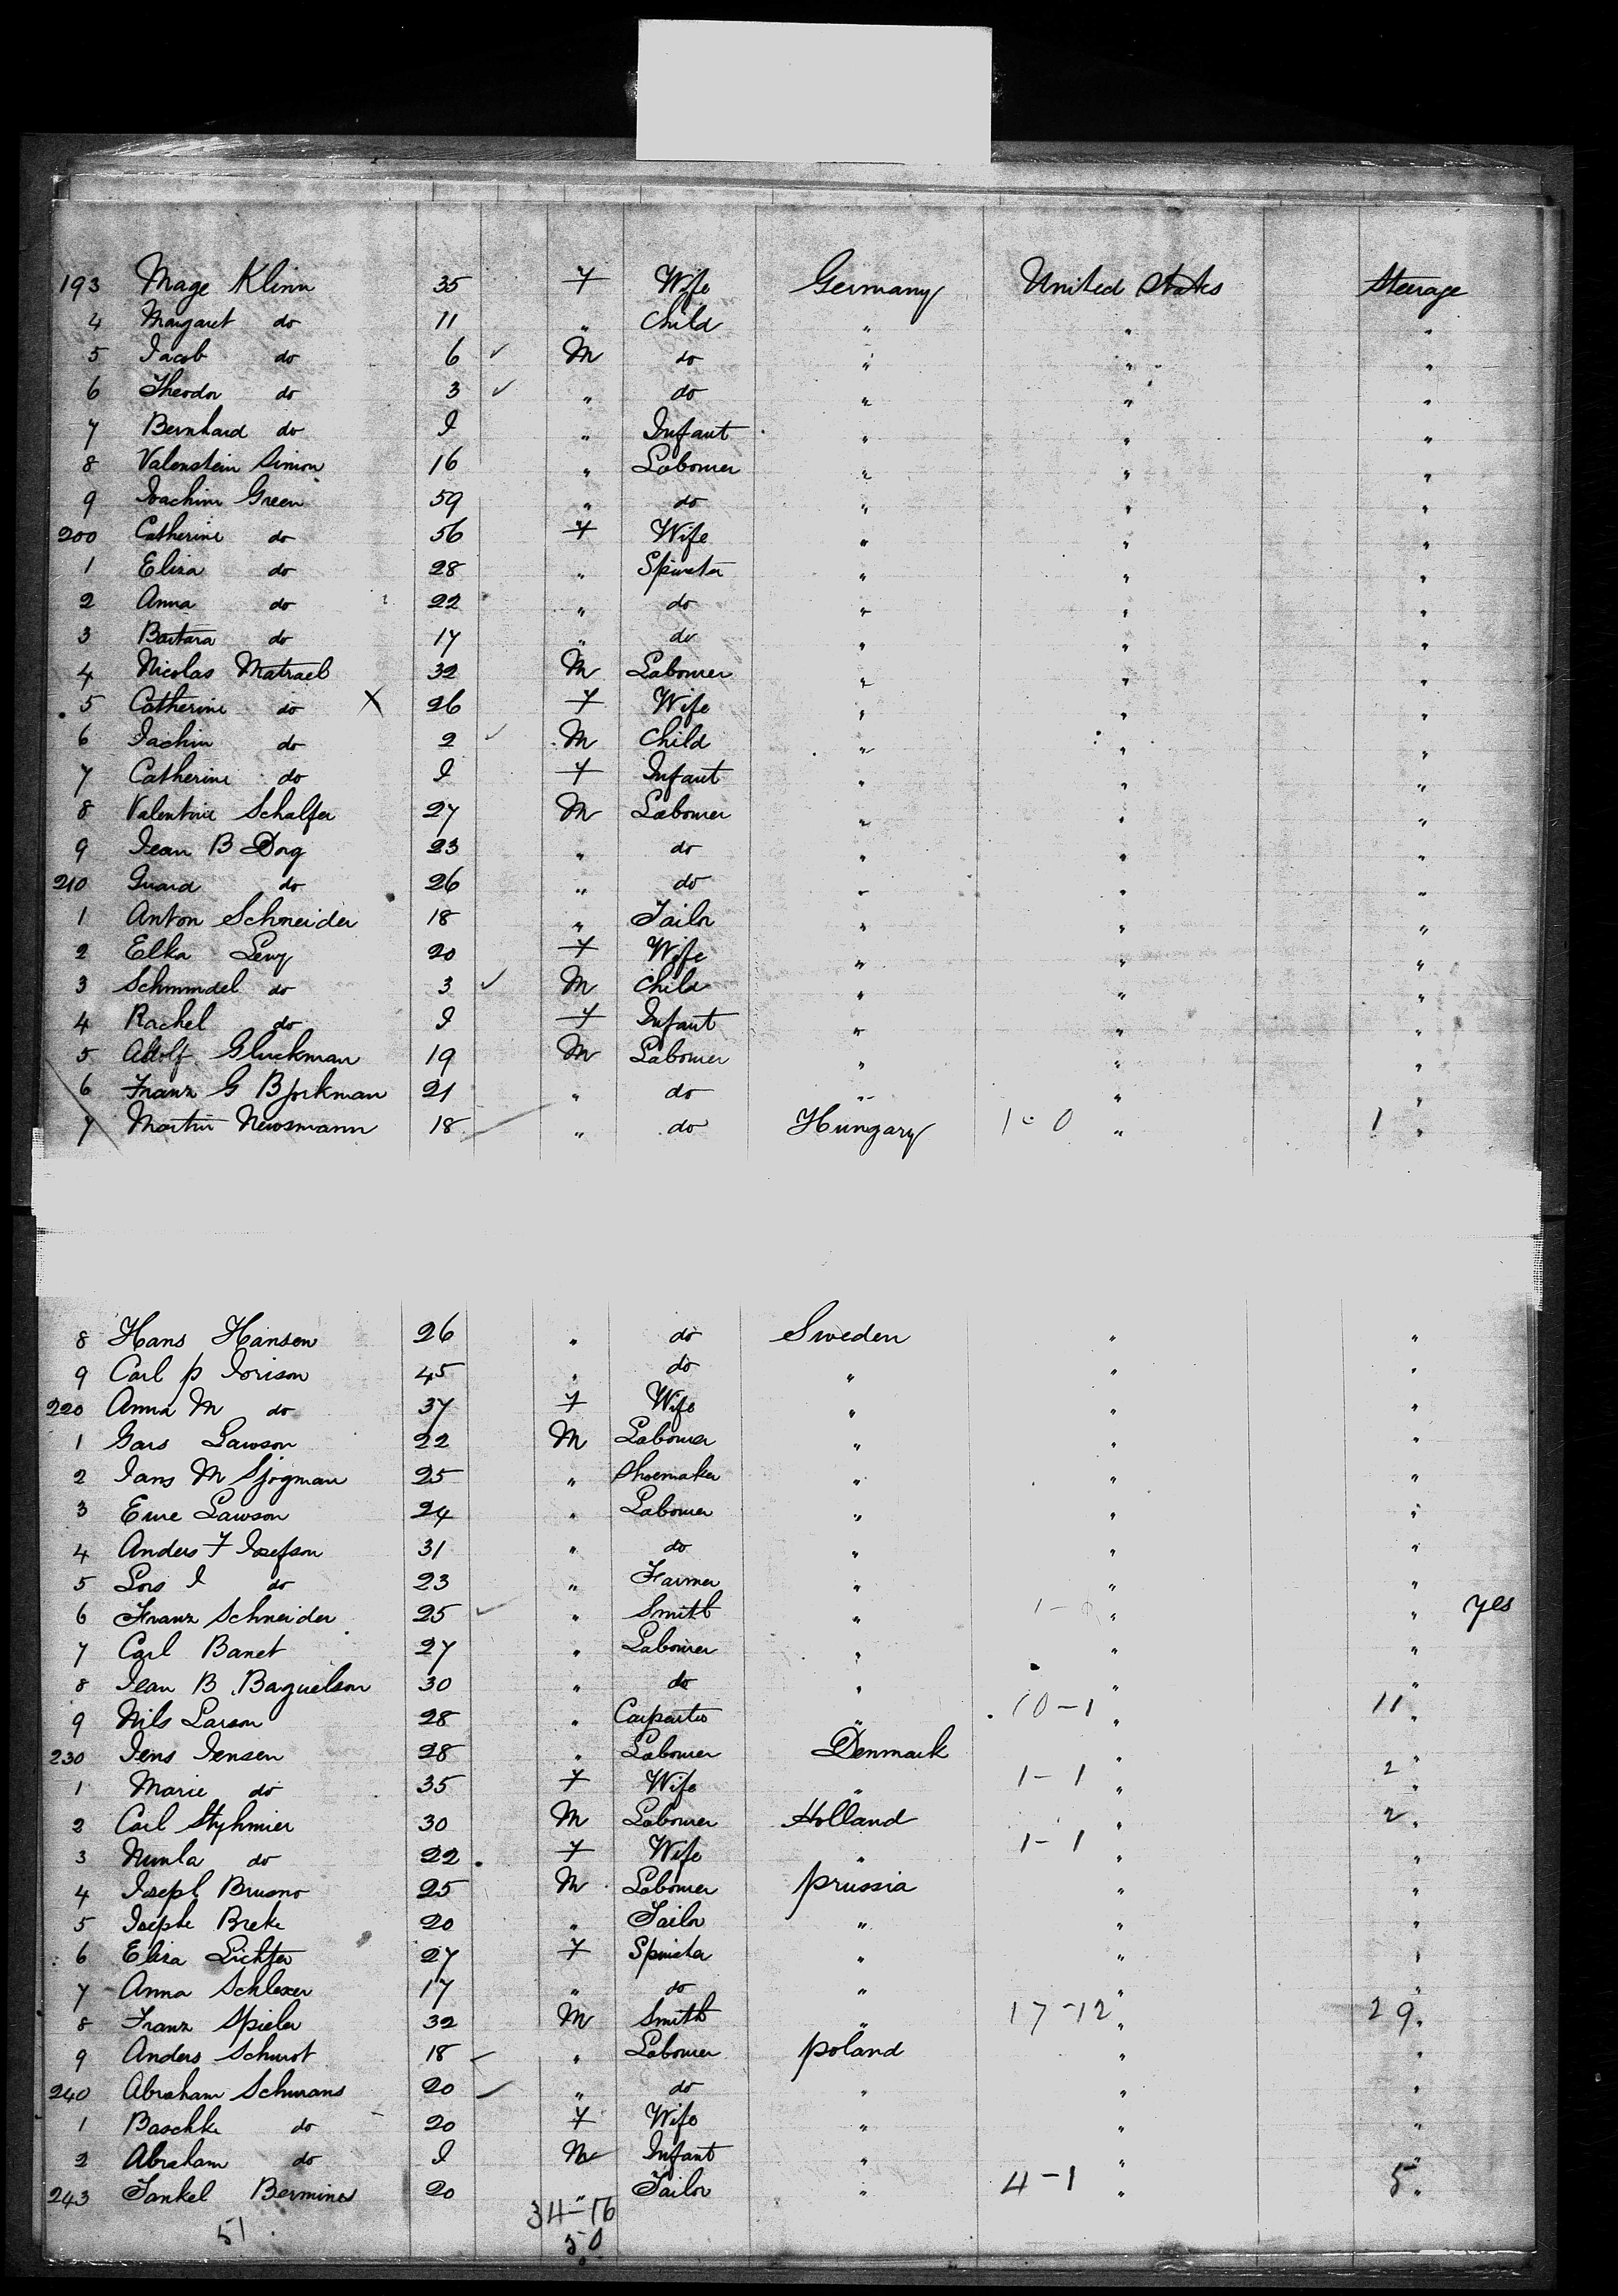 193 Mage Klinn 35 F Wife Germany United States Steerage
4 Margaret do 11 " Child " " "
5 Jacob do 6 ✓ M do " " "
6 Theodor do 3 ✓ " do " " "
7 Bernhard do I " Infant " " "
8 Valenstein Simon 16 " Labourer " " "
9 Joachim Green 59 " do " " "
200 Catherine do 56 F Wife " " "
1 Eliza do 28 " Spinster " " "
2 Anna do 22 " do " " "
3 Barbara do 17 " do " " "
4 Nicolas Matrael 32 M Labourer " " "
5 Catherine do X 26 F Wife " " "
6 Jachim do 2 ✓ M Child " " "
7 Catherine do I F Infant " " "
8 Valentine Schalfer 27 M Labourer " " "
9 Jean B Dorg 23 " do " " "
210 do 26 " do " " "
1 Anton Schneider 18 " Tailor " " "
2 Elka Levy 20 F Wife " " "
3 Schmmdel do 3 ✓ M Child " " "
4 Rachel do I F Infant " " "
5 Adolf Gluckman 19 M Labourer " " "
6 Franz G Bjorkman 21 " do " " "
7 Martin Newsmann 18 " do Hungary 1-0 " 1 "
8 Hans Hansen 26 " do Sweden " "
9 Carl P Jorison 45 " do " " "
220 Anna M do 37 F Wife " " "
1 Gars Lawson 22 M Labourer " " "
2 Jans M Sjogman 25 " Shoemaker " " "
3 Lawson 24 " Labourer " " "
4 Anders F Josefson 31 " do " " "
5 Lars J do 23 " Farmer " " "
6 Franz Schneider 25 ✓ " Smith " " " yes
7 Carl Banet 27 " Labourer " " "
8 Jean B Baguelson 30 " do " " "
9 Nils Larson 28 " Carpenter " 10-1 " 11 "
230 Jens Jensen 28 " Labourer Denmark " "
1 Marie do 35 F Wife " 1-1 " 2 "
2 Carl Styhmier 30 M Labourer Holland " 2 "
3 Nunla do 22 F Wife " 1-1 " "
4 Joseph Brusno 25 M Labourer Prussia " "
5 Josephe Breke 20 " Tailor " " "
6 Eliza Lichter 27 F Spinster " " "
7 Anna Schlexer 17 " do " " "
8 Franz Spieler 32 M Smith " 17-12 " 29 "
9 Anders Schurot 18 " Labourer Poland " "
240 Abraham Schwans 20 ✓ " do " " "
1 Baschke do 20 F Wife " " "
2 Abraham do I M Infant " " "
243 Jankel Bermines 20 " Tailor " 4-1 " 5 "
51 34-16
50